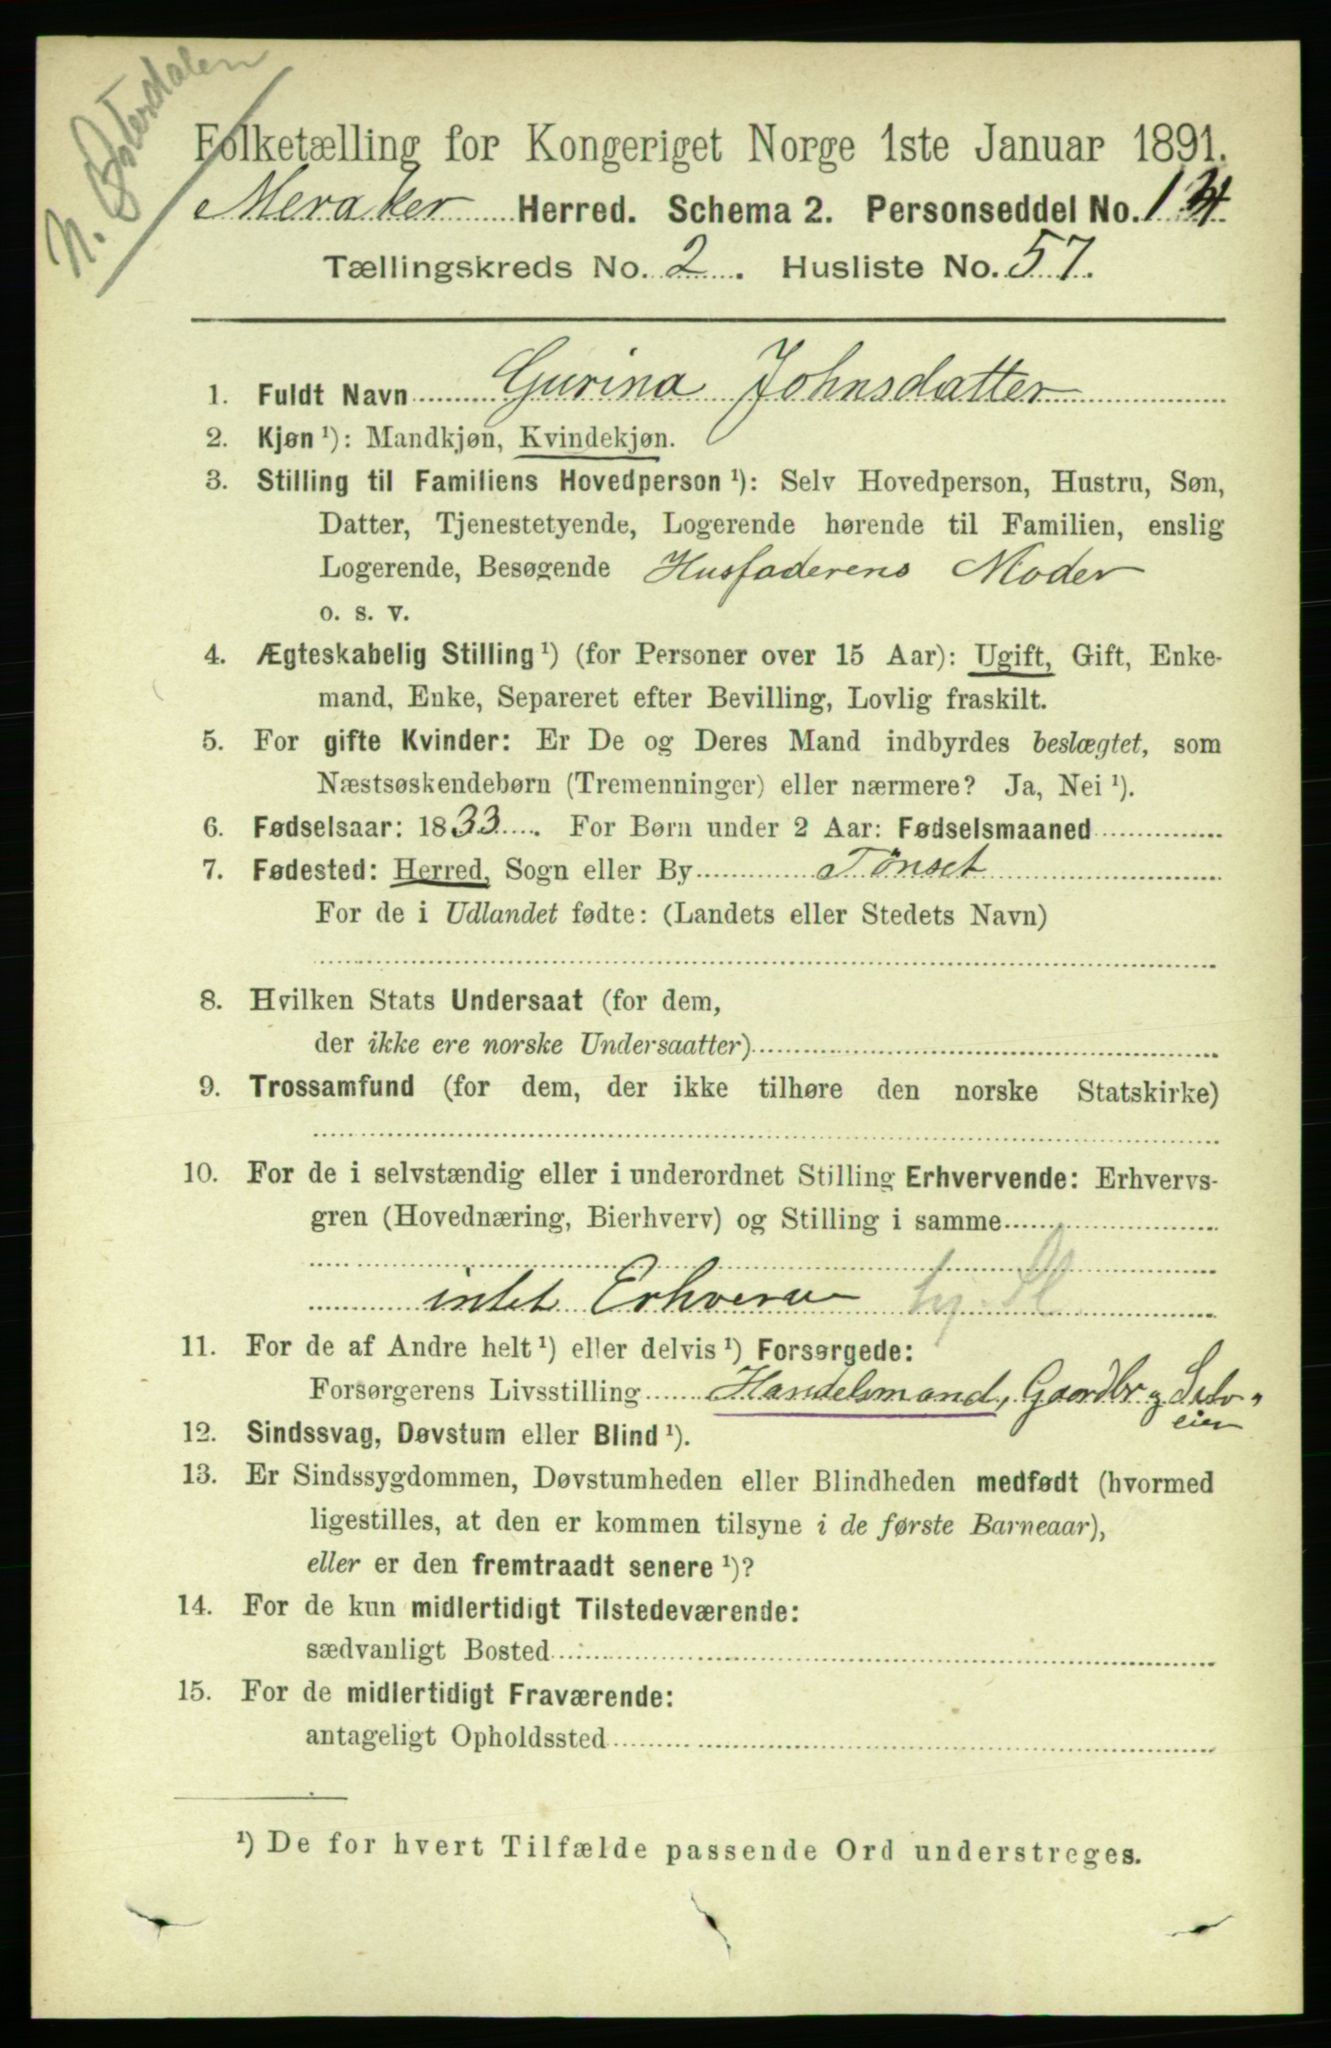 N. Østerdalen
Folketælling for Kongeriget Norge 1ste Januar 1891.
Meraker Herred. Schema 2. Personseddel No. 14
Tællingskreds No. 2. Husliste No. 57.
1. Fuldt Navn Gurina Johnsdatter
2. Kjøn ¹): Mandkjøn, Kvindekjøn.
3. Stilling til Familiens Hovedperson ¹): Selv Hovedperson, Hustru, Søn,
Datter, Tjenestetyende, Logerende hørende til Familien, enslig
Logerende, Besøgende Husfaderens Moder
o. s. v.
4. Ægteskabelig Stilling ¹) (for Personer over 15 Aar): Ugift, Gift, Enke-
mand, Enke, Separeret efter Bevilling, Lovlig fraskilt.
5. For gifte Kvinder: Er De og Deres Mand indbyrdes beslægtet, som
Næstsøskendebørn (Tremenninger) eller nærmere? Ja, Nei ¹).
6. Fødselsaar: 1833. For Børn under 2 Aar: Fødselsmaaned
7. Fødested: Herred, Sogn eller By Tønset
For de i Udlandet fødte: (Landets eller Stedets Navn)
8. Hvilken Stats Undersaat (for dem,
der ikke ere norske Undersaatter)
9. Trossamfund (for dem, der ikke tilhøre den norske Statskirke)
10. For de i selvstændig eller i underordnet Stilling Erhvervende: Erhvervs-
gren (Hovednæring, Bierhverv) og Stilling i samme
intet Erhverv
11. For de af Andre helt ¹) eller delvis ¹) Forsørgede:
Forsørgerens Livsstilling Handelsmand, Gaardbr. og Selv-
eier
12. Sindssvag, Døvstum eller Blind ¹).
13. Er Sindssygdommen, Døvstumheden eller Blindheden medfødt (hvormed
ligestilles, at den er kommen tilsyne i de første Barneaar),
eller er den fremtraadt senere ¹)?
14. For de kun midlertidigt Tilstedeværende:
sædvanligt Bosted
15. For de midlertidigt Fraværende:
antageligt Opholdssted
¹) De for hvert Tilfælde passende Ord understreges.